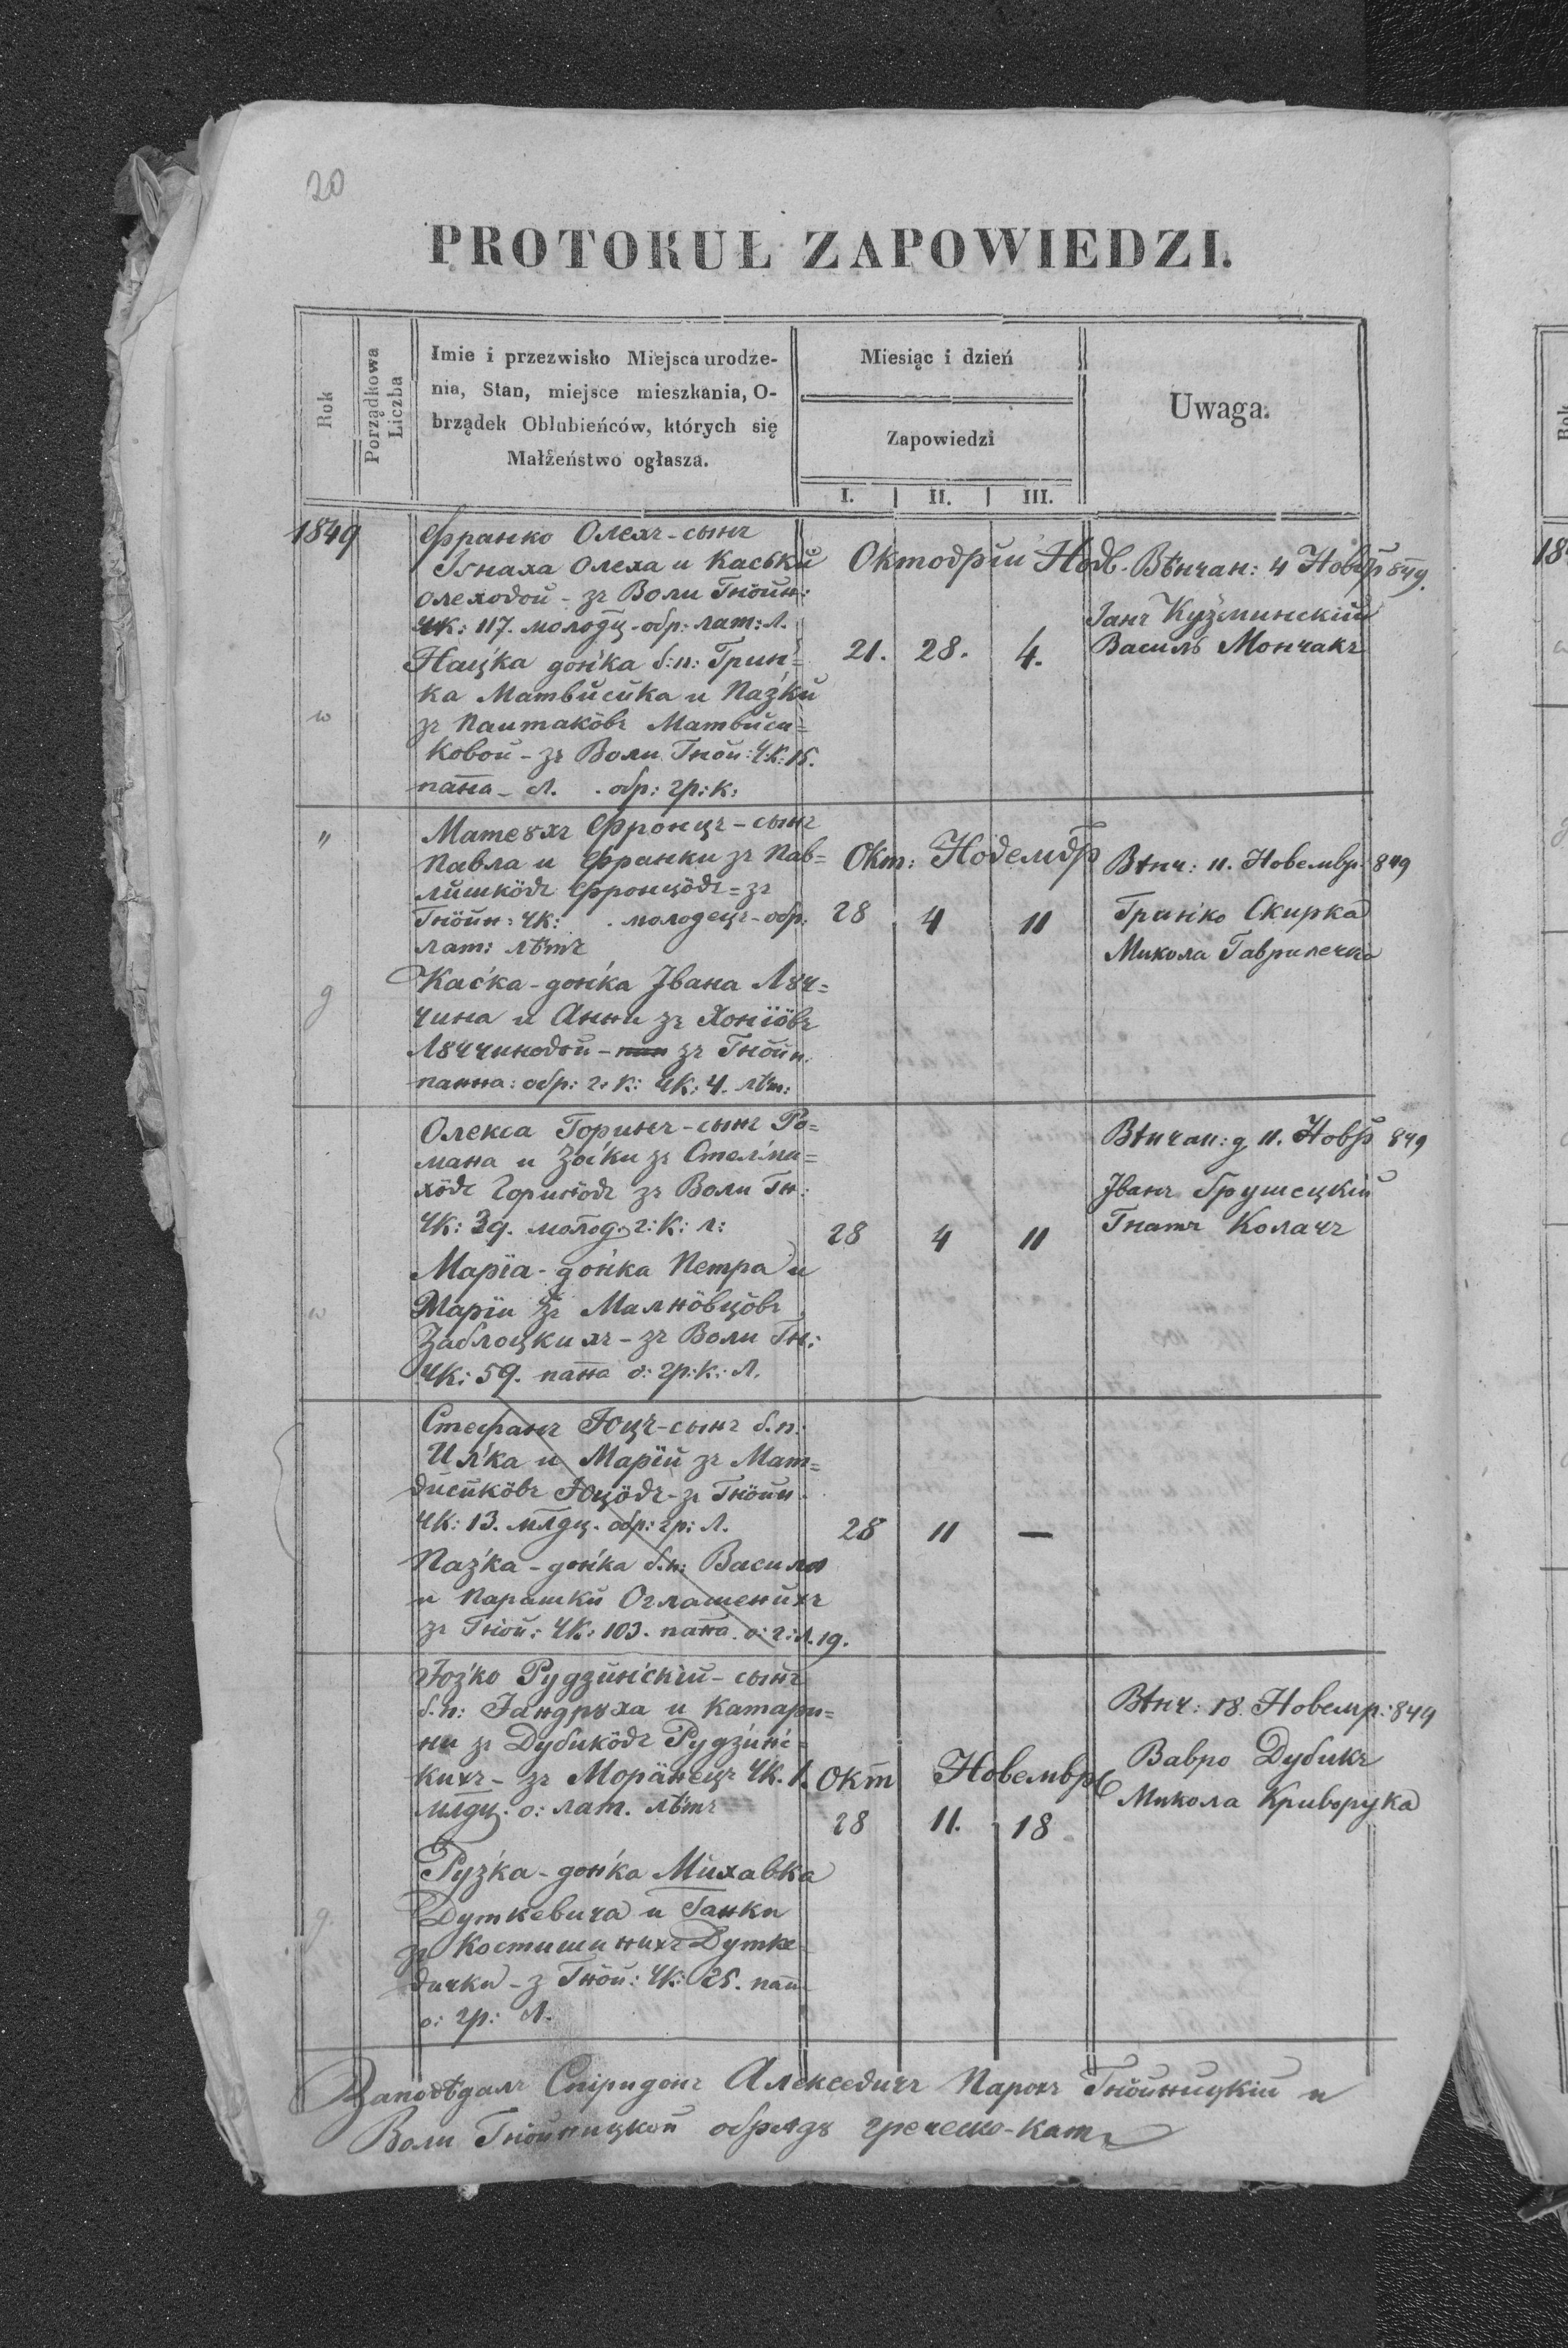 20
PROTOKUŁ ZAPOWIEDZI.
Rok
Porządkowa Liczba
Imie i przezwisko Miejsca urodze-
nia, Stan, miejsce mieszkania, O-
brządek Oblubieńców, których się
Małżeństwo ogłasza.
Miesiąc i dzień
Zapowiedzi
I. II. III.
Uwaga.
1849
Франко Олехъ - сынъ
Игнаха Олеха и Каськи
Олеховои - зъ Воли Гнôйн:
ЧК: 117. молодц - обр: лат: Л.
Нацька донька б: п: Гринь=
ка Матвійсика и Пазьки
зъ Паитакôвъ Матвиси=
ковои - зъ Воли Гнôй: ЧК: 15.
пана - Л. . обр: гр: к:
Октовріи Нов.
21. 28. 4.
Вѣнчан: 4 Новр 849.
Іанъ Кузминскій
Василь Мончакъ
w
"
Матеꙋхъ Фронцъ - сынъ
Павла и Франки зъ Пав=
лишкôвъ Фронцôвъ = зъ
Гнôйн: ЧК: . молодецъ - обр:
лат: лѣтъ
Каська - донька Ивана Лꙋч=
чина и Анни зъ Хоніôвъ
Лꙋччиновои - зъ Гнôйн.
панна: обр: г: к: ЧК: 4. лѣт:
Окт: Новемвр
28 4 11
Вѣнч: 11. Новемвр: 849
Гринько Скирка
Микола Гаврилечко
g
Олекса Горинъ - сынъ Ро=
мана и Зоськи зъ Стельма=
хôвъ Горинôвъ зъ Воли Гн:
ЧК: 39. молод. г: К: л:
Маріа - донька Петра и
Маріи зъ Малнôвцôвъ
Заблоцкихъ - зъ Воли Гн:
ЧК: 59. пана о: гр: к: Л.
28 4 11
Вѣнчан: д 11. Новр 849
Іванъ Грушецкій
Гнатъ Колачъ
w
Стефанъ Юцъ - сынъ б. п:
Илька и Маріи зъ Мат=
висикôвъ Юцôвъ - зъ Гнôйн.
ЧК: 13. млдц. обр: гр: Л.
Пазька - донька б. п: Василя
и Парашки Оглашенихъ
зъ Гнôй: ЧК: 103. пана. о: г: Л. 19.
28 11 —
Юзько Рудзинській - сынъ
б. п: Іандрꙋха и Катари=
ни зъ Дубикôвъ Рудзинсь=
кихъ - зъ Моранецъ ЧК. 1.
млдц. о: лат. лѣтъ
Рузька - донька Михавка
Дуткевича и Ганки
зъ Костишинихъ Дутке=
вички - з Гнôй: ЧК: 25. пан
о: гр: Л.
Окт Новемвр
28 11. 18
Вѣнч: 18. Новемр: 849
Вавро Дубикъ
Микола Криворука
g.
Заповѣдалъ Спіридонъ Алексевичъ Парохъ Гнôйницкій и
Воли Гнôйницкои обрядꙋ греческо-кат.